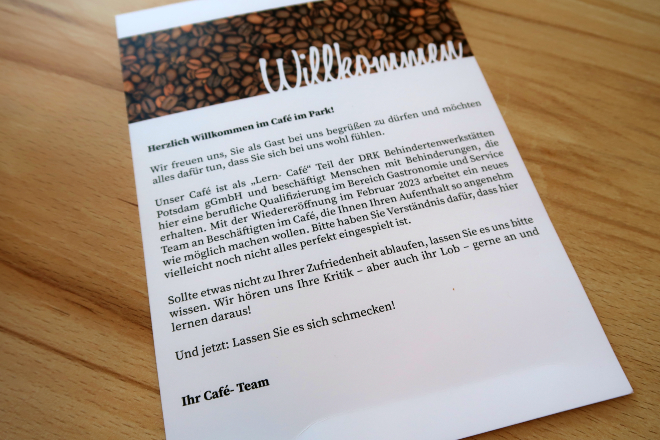 Willkommen
Herzlich Willkommen im Café im Park!
Wir freuen uns, Sie als Gast bei uns begrüßen zu dürfen und möchten
alles dafür tun, dass Sie sich bei uns wohl fühlen.
Unser Café ist als „Lern- Café“ Teil der DRK Behindertenwerkstätten
Potsdam gGmbH und beschäftigt Menschen mit Behinderungen, die
hier eine berufliche Qualifizierung im Bereich Gastronomie und Service
erhalten. Mit der Wiedereröffnung im Februar 2023 arbeitet ein neues
Team an Beschäftigten im Café, die Ihnen Ihren Aufenthalt so angenehm
wie möglich machen wollen. Bitte haben Sie Verständnis dafür, dass hier
vielleicht noch nicht alles perfekt eingespielt ist.
Sollte etwas nicht zu Ihrer Zufriedenheit ablaufen, lassen Sie es uns bitte
wissen. Wir hören uns Ihre Kritik – aber auch ihr Lob – gerne an und
lernen daraus!
Und jetzt: Lassen Sie es sich schmecken!
Ihr Café- Team